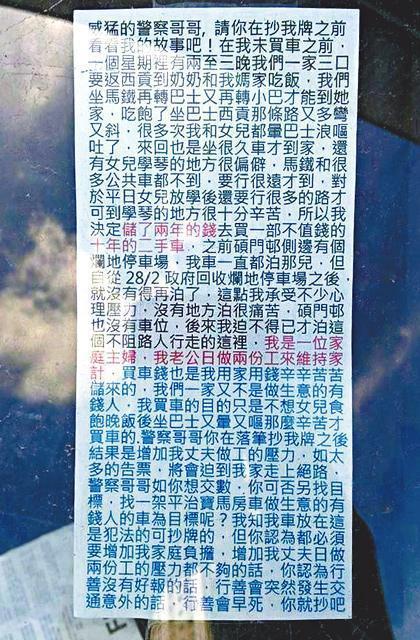 威猛的警察哥哥, 請你在抄我牌之前
看看我的故事吧！在我未買車之前,
一個星期裡有兩至三晚我們一家三口
要返西貢到奶奶和三媽家吃飯, 我們
坐馬鐵再轉巴士又再轉小巴才能到她
家, 吃飽了坐巴士西貢那條路又多彎
又斜, 很多次我和女兒都暈巴士浪嘔
吐了, 來回也是坐很久車才到家, 還
有女兒學琴的地方很偏僻, 馬鐵和很
多公共車都不到, 要行很遠才到, 對
於平日女兒放學後還要行很多的路才
可到學琴的地方很十分辛苦, 所以我
決定儲了兩年的錢去買一部不值錢的
十年的二手車, 之前碩門邨側邊有個
爛地停車場, 我車一直都泊那兒, 但
自從 28/2 政府回收爛地停車場之後,
就沒有得再泊了, 這點我承受不少心
理壓力, 沒有地方泊很痛苦, 碩門邨
也沒有車位, 後來我迫不得已才泊這
個不阻路人行走的這裡, 我是一位家
庭主婦, 我老公日做兩份工來維持家
計, 買車錢也是我用家用錢辛辛苦苦
儲來的, 我們一家又不是做生意的有
錢人, 我買車的目的只是不想女兒食
飽晚飯後坐巴士又暈又嘔那麼辛苦才
買車的.警察哥哥你在落筆抄我牌之後
結果是增加我丈夫做工的壓力, 如太
多的告票, 將會迫到我家走上絕路,
警察哥哥如你想交數, 你可否另找目
標, 找一架平治寶馬房車做生意的有
錢人的車為目標呢？我知我車放在這
是犯法的可抄牌的, 但你認為都必須
要增加我家庭負擔, 增加我丈夫日做
兩份工的壓力都不夠的話, 你認為行
善沒有好報的話, 行善會突然發生交
通意外的話, 行善會早死, 你就抄吧